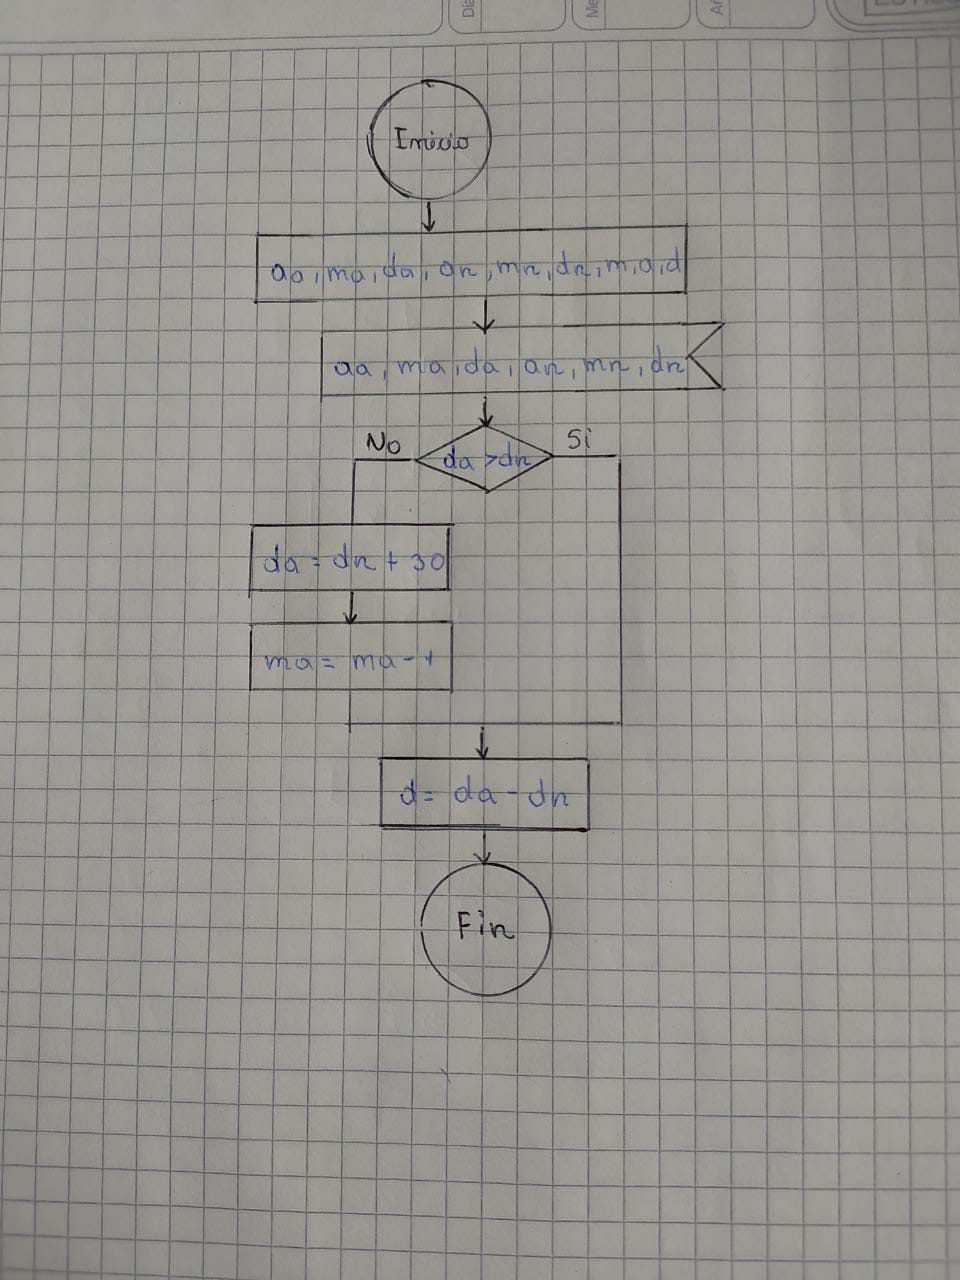 Inicio
aa, ma, da, an, mn, dn, m, a, d
aa, ma, da, an, mn, dn
No
Si
da > dn
da = dn + 30
ma = ma - 1
d = da - dn
Fin